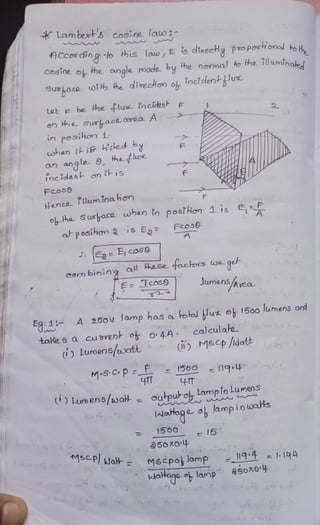 * Lambert's cosine law:-
According to this law, E is directly proportional to the
cosine of the angle made by the normal to the illuminated
surface with the direction of incident flux
Let F be the flux incident
on the surface area A
in position 1.
when it is tilted by
an angle θ, the flux
incident on it is
Fcosθ
F
1
2
F
F
F
A
θ
Hence illumination
of the surface when in position 1 is E₁ = F/A
at position 2 is E₂ = Fcosθ/A
∴ E₂ = E₁ cosθ
combining all these factors we get
E = Icosθ/r² lumens/area
Eg: 1:- A 250V lamp has a total flux of 1500 lumens and
takes a current of 0.4A. calculate
(i) lumens/watt (ii) MSCP/Watt
M.S.C.P = F/4π = 1500/4π = 119.4
(i) Lumens/watt = output of Lamp in Lumens / Wattage of lamp in watts
= 1500 / 250x0.4 = 15
MSCP/Watt = MSCP of lamp / Wattage of lamp = 119.4 / 250x0.4 = 1.194